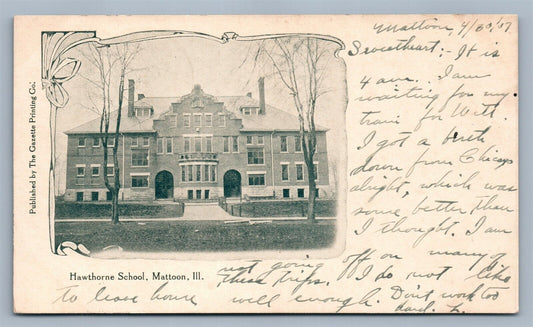 Published by The Gazette Printing Co.
Hawthorne School, Mattoon, Ill.
Mattoon, 4/30/07
Sweetheart:- It is
4 a.m. I am
waiting for my
train for Will.
I got a berth
down from Chicago
alright, which was
some better than
I thought. I am
not going off on many of
these trips. I do not like
to leave home well enough. Don't work too
hard.